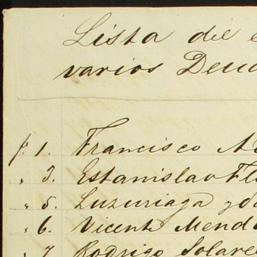 Lista del e
varios Deud
f. 1. Francisco A
" 3. Estanislao Fl
" 5. Luzuriaga y
" 6. Vicente Mend
" 7. Rodrigo Solare